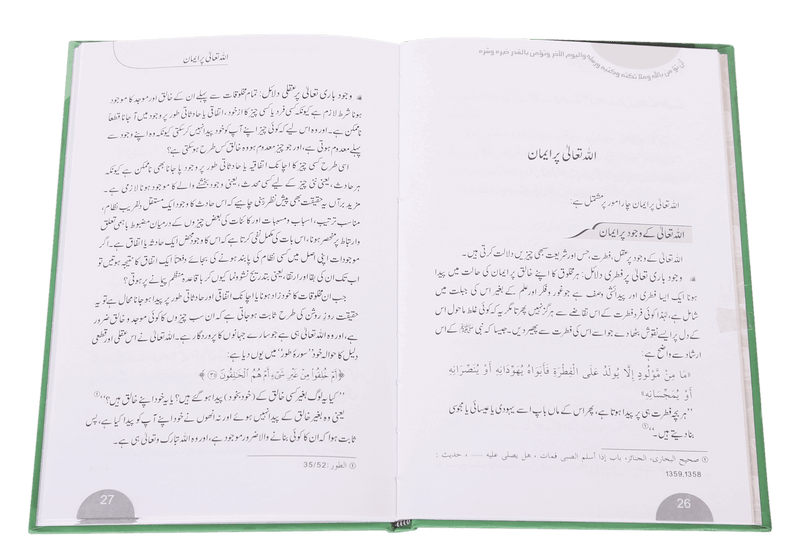 أن تؤمن بالله وملائكته وكتبه ورسله واليوم الآخر وتؤمن بالقدر خيره وشره
اللہ تعالیٰ پر ایمان
اللہ تعالیٰ پر ایمان چار امور پر مشتمل ہے:
اللہ تعالیٰ کے وجود پر ایمان
اللہ تعالیٰ کے وجود پر عقل، فطرت، حس اور شریعت سبھی چیزیں دلالت کرتی ہیں۔
وجود باری تعالیٰ پر فطری دلائل: ہر مخلوق کا اپنے خالق پر ایمان کی حالت میں پیدا
ہونا ایک ایسا فطری اور پیدائشی وصف ہے جو غور و فکر اور علم کے بغیر اس کی جبلت میں
شامل ہے، لہٰذا کوئی فرد فطرت کے اس تقاضے سے ہرگز نہیں پھرتا مگر یہ کہ کوئی غلط ماحول اس
کے دل پر ایسے نقوش بٹھا دے جو اسے اس کی فطرت سے پھیر دیں۔ جیسا کہ نبی ﷺ کے اس
ارشاد سے واضح ہے:
«مَا مِنْ مَوْلُودٍ إِلَّا يُولَدُ عَلَى الْفِطْرَةِ فَأَبَوَاهُ يُهَوِّدَانِهِ أَوْ يُنَصِّرَانِهِ
أَوْ يُمَجِّسَانِهِ»
”ہر بچہ فطرت ہی پر پیدا ہوتا ہے، پھر اس کے ماں باپ اسے یہودی یا عیسائی یا مجوسی
بنا دیتے ہیں۔“①
① صحيح البخاري، الجنائز، باب إذا أسلم الصبي فمات ، هل يصلى عليه ..... ، حديث :
1359,1358
26
اللہ تعالیٰ پر ایمان
وجود باری تعالیٰ پر عقلی دلائل: تمام مخلوقات سے پہلے ان کے خالق اور موجد کا موجود
ہونا شرط لازم ہے کیونکہ کسی فرد یا کسی چیز کا از خود، اتفاقی یا حادثاتی طور پر وجود میں آ جانا قطعاً
ناممکن ہے۔ اور وہ اس لیے کہ کوئی چیز اپنے آپ کو خود پیدا نہیں کر سکتی کیونکہ وہ اپنے وجود سے
پہلے معدوم ہوتی ہے، اور جو چیز معدوم ہو وہ خالق کس طرح ہو سکتی ہے؟
اسی طرح کسی چیز کا اچانک اتفاقیہ یا حادثاتی طور پر وجود پا جانا بھی ناممکن ہے کیونکہ
ہر حادث، یعنی نئی چیز کے لیے کسی محدث، یعنی وجود بخشنے والے کا موجود ہونا لازمی ہے۔
مزید برآں یہ حقیقت بھی پیش نظر رہنی چاہیے کہ اس حادث کا وجود ایک مستقل، دلفریب نظام،
مناسب ترتیب، اسباب و مسببات اور کائنات کی بعض چیزوں کے درمیان مضبوط باہمی تعلق
و ارتباط پر منحصر ہونا، اس بات کی مکمل نفی کرتا ہے کہ اس کا وجود محض ایک حادثہ یا اتفاق ہے۔ اگر
موجودات اپنی اصل میں کسی نظام کی پابند ہونے کی بجائے دفعتاً ایک اتفاق کا نتیجہ ہوتیں تو
اب تک ان کی بقا اور ارتقا، یعنی بتدریج نشوونما کیوں کر باقاعدہ منظم پیمانے پر ہوتی؟
جب ان مخلوقات کا خود زاد ہونا یا اچانک اتفاقی اور حادثاتی طور پر پیدا ہو جانا محال ہے تو یہ
حقیقت روز روشن کی طرح ثابت ہو جاتی ہے کہ ان سب چیزوں کا کوئی موجد و خالق ضرور
ہے، اور وہ اللہ تعالیٰ ہی ہے جو سارے جہانوں کا پروردگار ہے۔ اللہ تعالیٰ نے اس عقلی اور قطعی
دلیل کا حوالہ خود ”سورۂ طور“ میں یوں دیا ہے:
﴿أَمْ خُلِقُوا مِنْ غَيْرِ شَيْءٍ أَمْ هُمُ الْخَالِقُونَ ﴿٣٥﴾﴾
”کیا یہ لوگ بغیر کسی خالق کے (خود بخود) پیدا ہو گئے ہیں؟ یا یہ خود اپنے خالق ہیں؟“①
یعنی وہ بغیر خالق کے پیدا نہیں ہوئے اور نہ انھوں نے خود اپنے آپ کو پیدا کیا ہے، پس
ثابت ہوا کہ ان کا کوئی بنانے والا ضرور موجود ہے، اور وہ اللہ تبارک وتعالیٰ ہی ہے۔
① الطور : 35/52
27